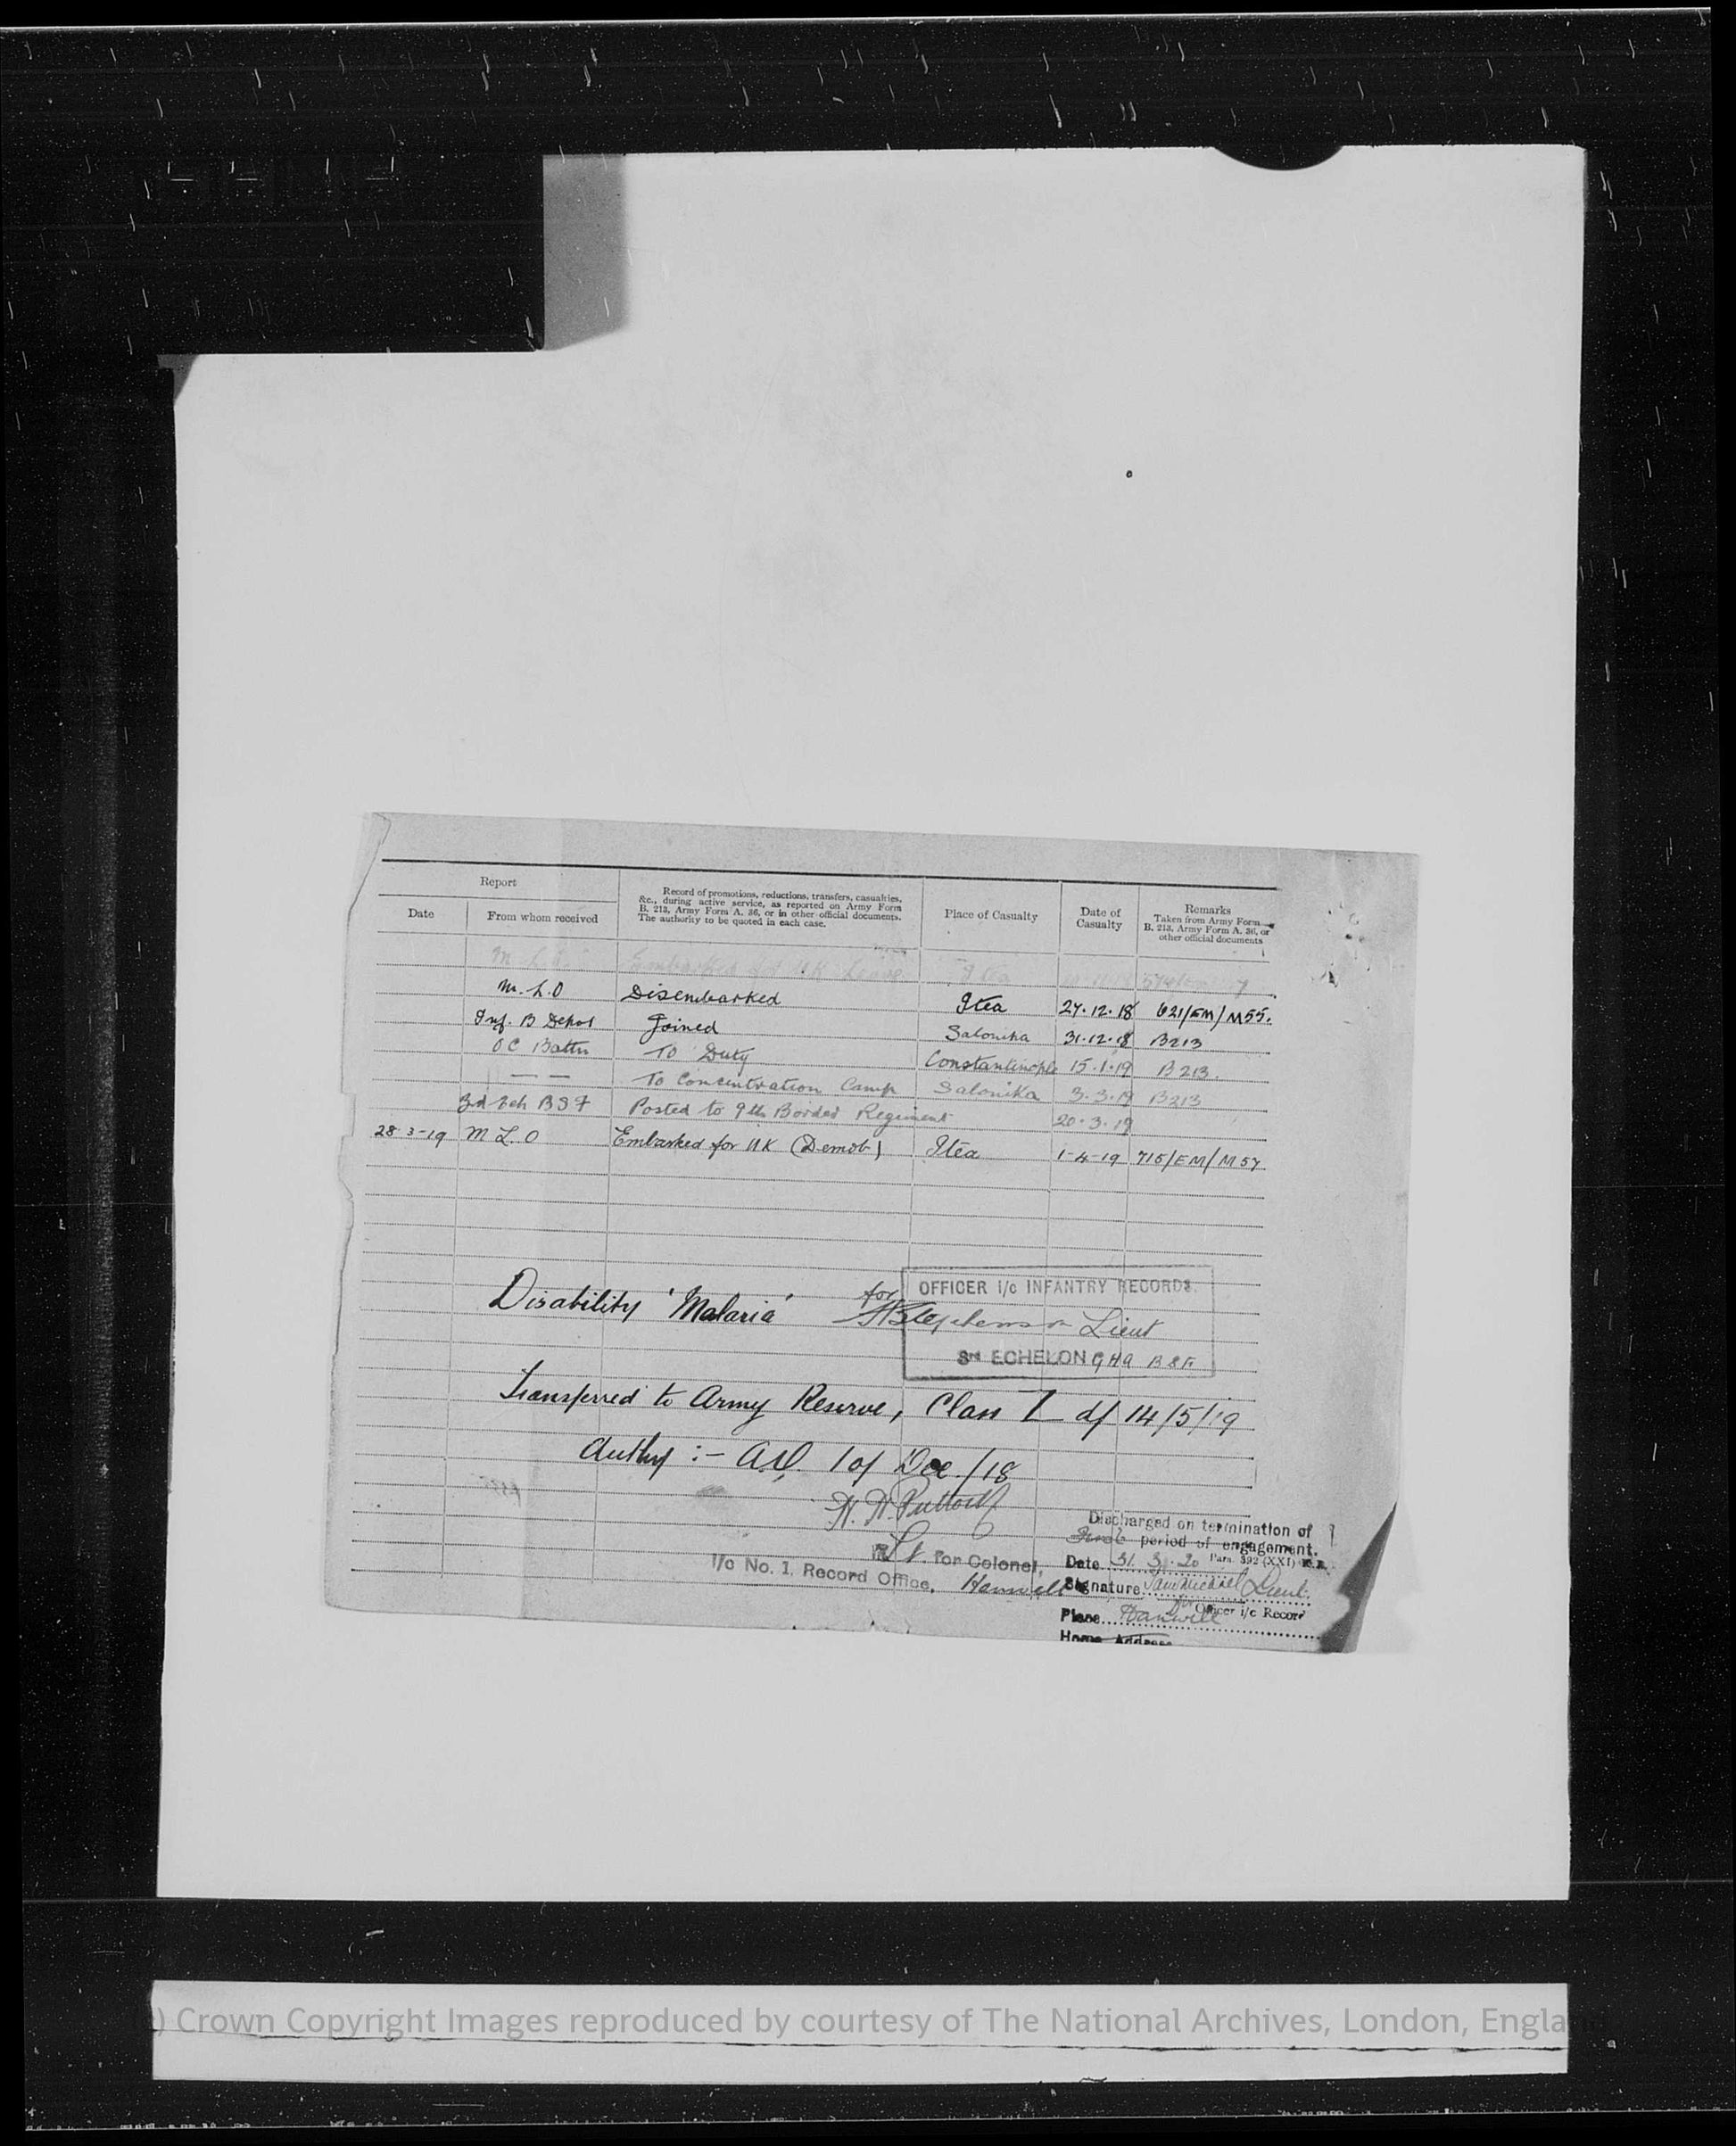 Report
Date From whom received Record of promotions, reductions, transfers, casualties, &c., during active service, as reported on Army Form B. 213, Army Form A. 36, or in other official documents. The authority to be quoted in each case. Place of Casualty Date of Casualty Remarks Taken from Army Form B. 213, Army Form A. 36, or other official documents
M.L.O. Embarked for UK Leave Itea
M.L.O Disembarked Itea 27.12.18 621/EM/M55.
Inf. B Depot Joined Salonika 31.12.18 B213
OC Battn To Duty Constantinople 15.1.19 B213.
— — To Concentration Camp Salonika 3.3.19 B213
3d Ech BSF Posted to 9th Border Regiment 20.3.19
28-3-19 M L. O Embarked for UK (Demob) Itea 1-4-19 715/EM/M57
OFFICER i/c INFANTRY RECORDS.
Disability 'Malaria' for Stephenson Lieut
3RD ECHELON GHQ BSF.
Transferred to Army Reserve, Class Z d/ 14/5/19
Authy :- A.O. 1 of Dec./18
Lt. For Colonel,
I/c No. 1. Record Office, Hanwell
Discharged on termination of
period of engagement.
Date 31. 3. 20 Para. 392 (XXI) K.R.
Signature Lieut.
for Officer i/c Record
Place Hanwell
Home Address
) Crown Copyright Images reproduced by courtesy of The National Archives, London, Engla